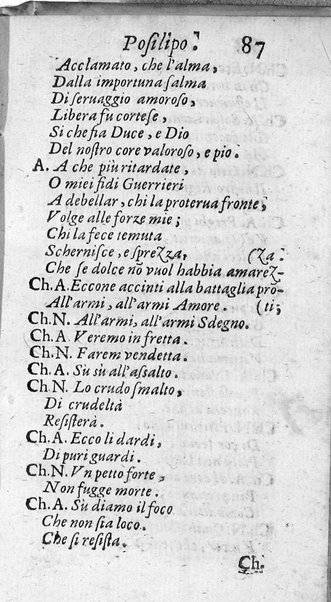 Posilipo. 87
Acclamato, che l'alma,
Dalla importuna salma
Di seruaggio amoroso,
Libera fu cortese,
Si che sia Duce, e Dio
Del nostro core valoroso, e pio.
A. A che più ritardate,
O miei fidi Guerrieri
A debellar, chi la proterua fronte,
Volge alle forze mie;
Chi la fece temuta
Schernisce, e sprezza, (za:
Che se dolce nō vuol habbia amarez-
Ch. A. Eccone accinti alla battaglia prō-
All'armi, all'armi Amore. (ti;
Ch. N. All'armi, all'armi Sdegno.
Ch. A. Veremo in fretta.
Ch. N. Farem vendetta.
Ch. A. Sù sù all'assalto.
Ch. N. Lo crudo smalto,
Di crudeltà
Resisterà.
Ch. A. Ecco li dardi,
Di puri guardi.
Ch. N. Vn petto forte,
Non fugge morte.
Ch. A. Sù diamo il foco
Che non sia loco.
Che si resista.
Ch.